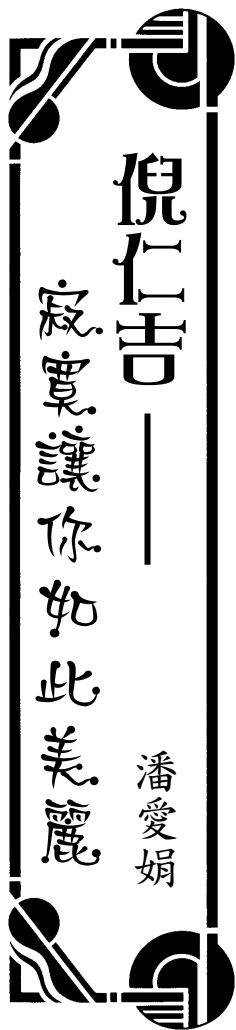 倪仁吉——
寂寞讓你如此美麗
潘愛娟